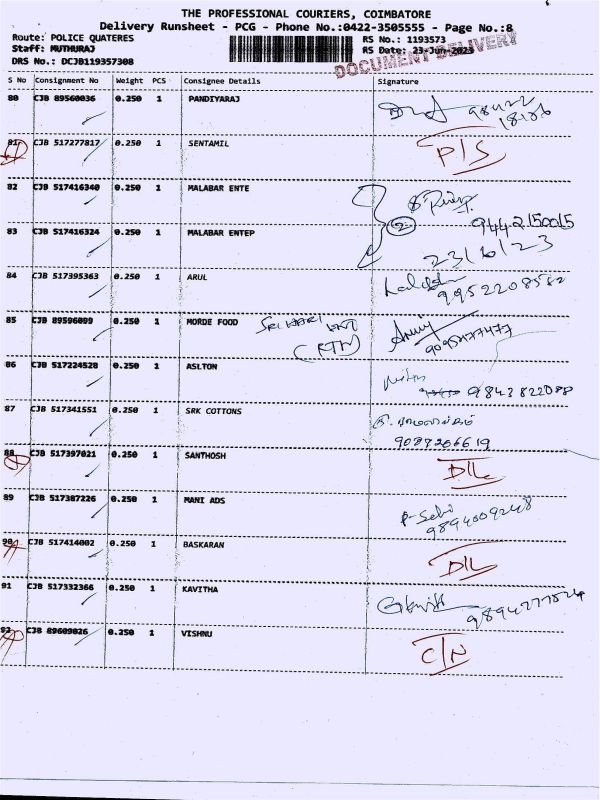 THE PROFESSIONAL COURIERS, COIMBATORE
Delivery Runsheet - PCG - Phone No.:0422-3505555 - Page No.:8
Route: POLICE QUATERES RS No.: 1193573
Staff: MUTHURAJ RS Date: 23-Jun-2023
DRS No.: DCJB119357308
DOCUMENT DELIVERY
S No Consignment No Weight PCS Consignee Details Signature
80 CJB 89560036 0.250 1 PANDIYARAJ 98422
18186
81 CJB 517277817 0.250 1 SENTAMIL P/S
82 CJB 517416340 0.250 1 MALABAR ENTE
2 9442150015
83 CJB 517416324 0.250 1 MALABAR ENTEP 23/6/23
84 CJB 517395363 0.250 1 ARUL
9952208582
85 CJB 89596099 0.250 1 MORDE FOOD SRI HARI ENT
(RTN) 9095477477
86 CJB 517224528 0.250 1 ASLTON
9843822088
87 CJB 517341551 0.250 1 SRK COTTONS
9087206619
88 CJB 517397021 0.250 1 SANTHOSH D/L
89 CJB 517387226 0.250 1 MANI ADS
9894009248
90 CJB 517414002 0.250 1 BASKARAN D/L
91 CJB 517332366 0.250 1 KAVITHA
9894277524
92 CJB 89609026 0.250 1 VISHNU C/N